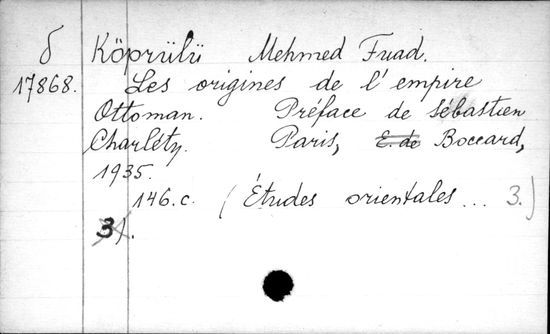 б Köprülü Mehmed Fuad.
17868. Les origines de l'empire
Ottoman. Préface de Sébastien
Charléty. Paris, E. de Boccard,
1935.
146.c. (Études orientales... 3.)
3).